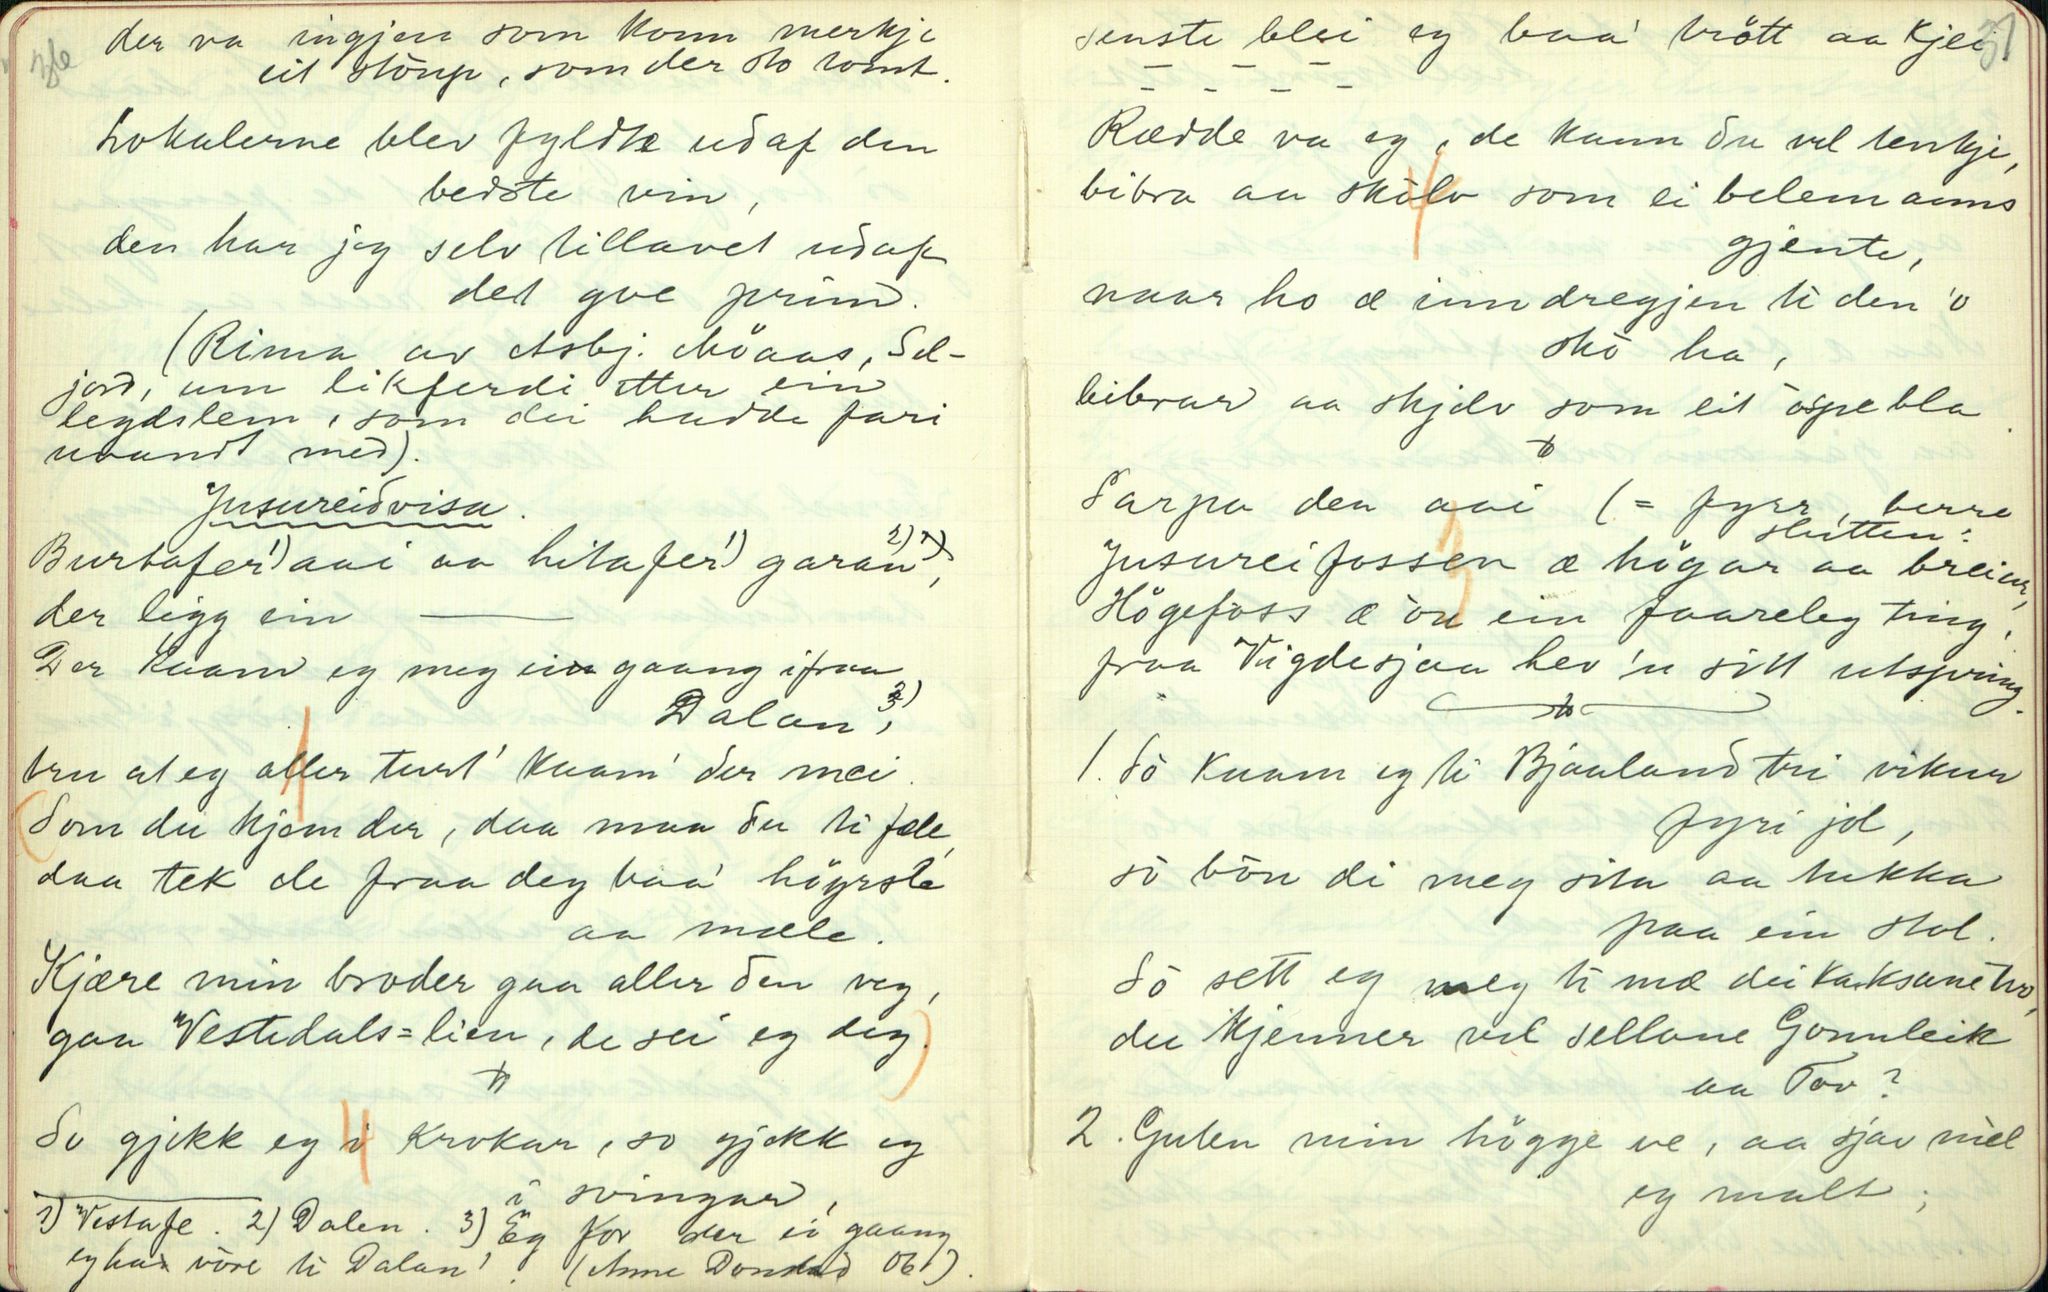 36
der va ingjen som konn merkje
eit stōnp, som der sto tomt.
Lokalerne blev fyldte udaf den
bedste vin,
den har jeg selv tillavet udaf
det gve prim.
(Rima av Asbj. Möaas, Sel-
jord, um likferdi etter ein
legdslem, som dei hadde fari
uvandt med).
Jusureidvisa.
Burtafer¹) aai aa hitafer¹) garan²),
der ligg ein ———
Der kaam eg meg ein gaang ifraa
Dalan³),
tru at eg aller turt' kaam' der mei.
(Som du kjem der, daa maa du ti fæle,
daa tek de fraa deg baa' högrste
aa mæle.
Kjære min broder gaa aller den veg,
gaa Vestedals=lien, de sei eg deg.)
So gjekk eg i krokar, so gjekk eg
i svingar,
1) Vestafe. 2) Dalen. 3) "Eg for der ei gaang
eg ha vōre ti Dalan'. (Anne Donstad 06).
37
senste blei eg baa' trött aa kjei
– – – –
– – – –
Rædde va eg, de kann du vel tenkje,
bibra aa skōlv som ei belemanns
gjente,
naar ho æ inndregjen ti den 'o
skō ha,
bibrar aa skjelv som eit ōspebla.
Sarpa den aai (= fyrr, berre
slutten:
Jusureifossen æ högar aa breiar,
Högefoss æ ōu ein faareleg ting,
fraa Vigdesjaa hev 'n sitt utspring.
1. Sō kaam eg ti Bjaaland tri vikur
fyri jol,
sō bōu di meg sita aa tukka
paa ein stol.
Sō sett eg meg ti mæ dei kaksane tvo,
du kjenner vel sellane Gonnleik
aa Tov?
2. Guten min högge ve, aa sjav mèl
eg malt;